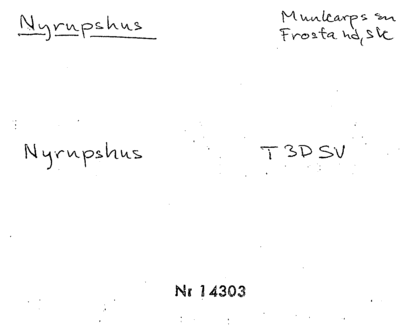 Nyrupshus
Munkarps sn
Frosta hd, Sk
Nyrupshus
T 3D SV
Nr 14303